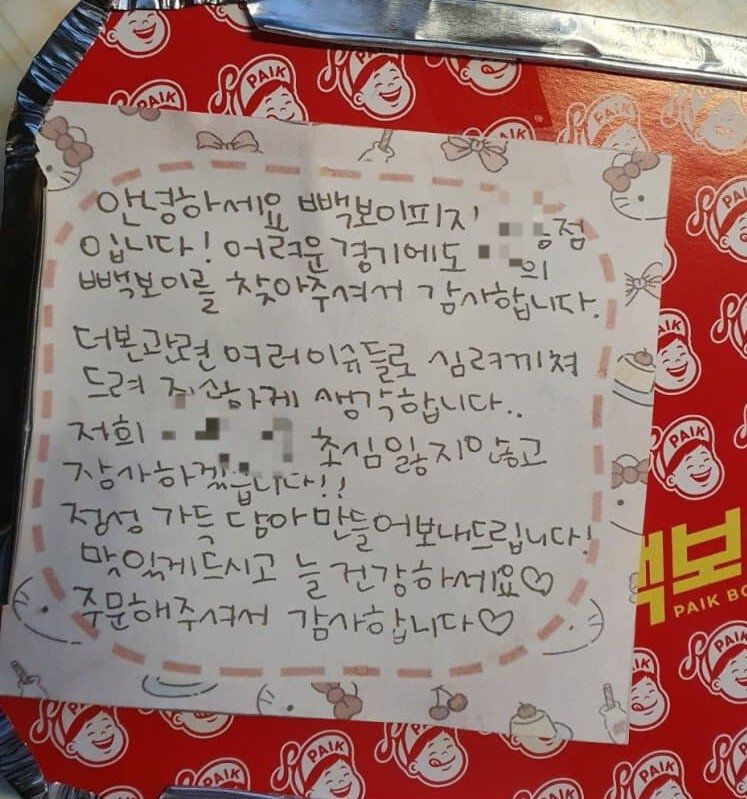 안녕하세요 빽보이피자 점
입니다! 어려운 경기에도 의
빽보이를 찾아주셔서 감사합니다.
더본관련 여러이슈들로 심려끼쳐
드려 죄송하게 생각합니다..
저희 초심잃지안호고
장사하겠습니다!!
정성 가득 담아만들어보내드립니다!
맛있게드시고 늘건강하세요♡
주문해주셔서 감사합니다♡
백보
PAIK BO
PAIK
PAIK
PAIK
PAIK
PAIK
PAIK
PAIK